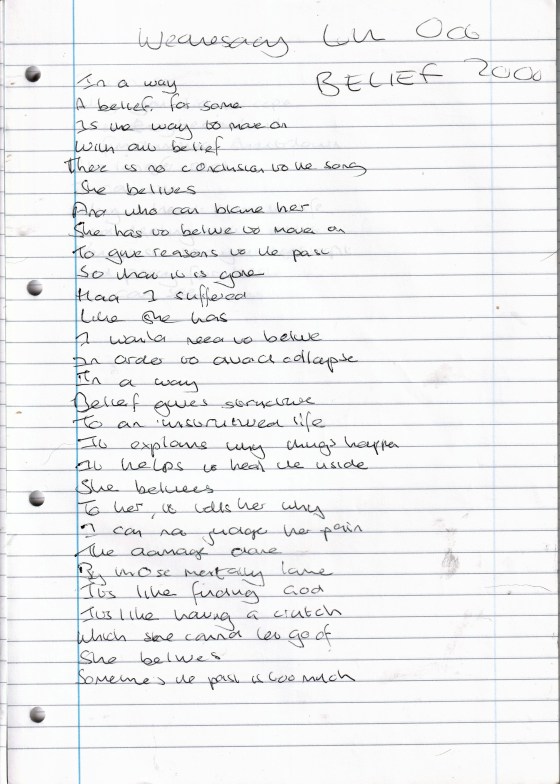 Wednesday 4th Oct
BELIEF 2000
In a way
A belief for some
Is the way to move on
With out belief
There is no conclusion to the song
She belives
And who can blame her
She has to belive to move on
To give reasons to the past
So that it is gone
Had I suffered
Like she has
I would need to belive
In order to avoid collapse
In a way
Belief gives structure
To an unstructured life
It explains why things happen
It helps to heal the inside
She belives
To her, it tells her why
I can not judge her pain
The damage done
By those mentally lame
It's like finding God
It's like having a crutch
Which she cannot let go of
She belives
Sometimes the past is too much